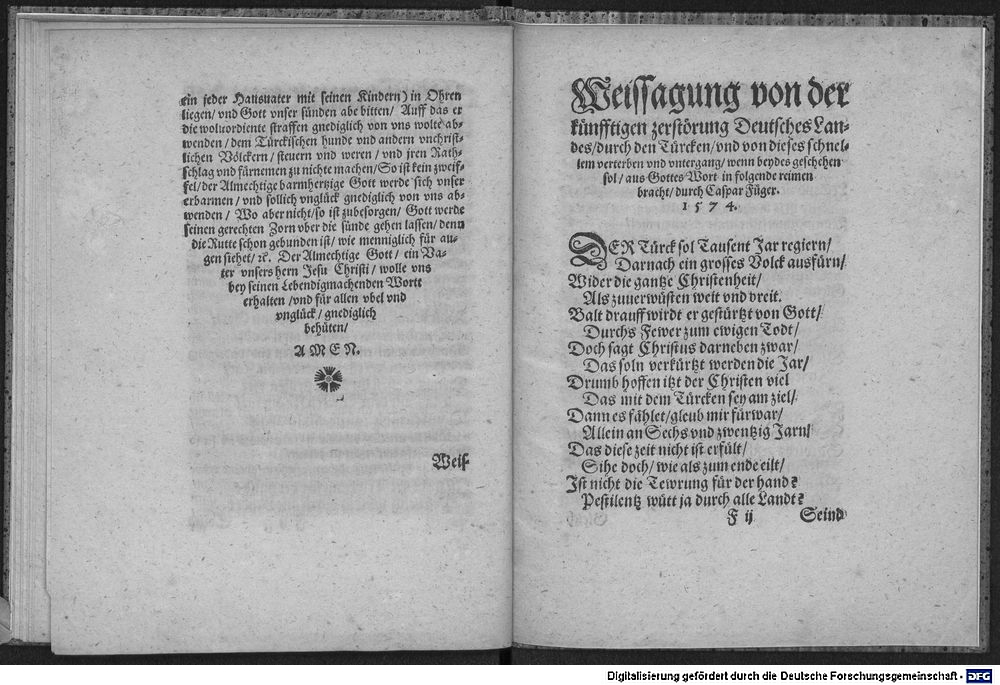 ein jeder Hausuater mit seinen Kindern) in Ohren
liegen/ vnd Gott vnser sünden abe bitten/ Auff das er
die woluordiente straffen gnediglich von vns wolte ab-
wenden/ dem Türckischen hunde vnd andern vnchrist-
lichen Völckern/ steuern vnd weren/ vnd jren Rath-
schlag vnd fürnemen zu nichte machen/ So ist kein zweif-
fel/ der Almechtige barmhertzige Gott werde sich vnser
erbarmen/ vnd sollich vnglück gnediglich von vns ab-
wenden/ Wo aber nicht/ so ist zubesorgen/ Gott werde
seinen gerechten Zorn vber die sünde gehen lassen/ denn
die Rutte schon gebunden ist/ wie menniglich für au-
gen siehet/ ꝛc. Der Almechtige Gott/ ein Va-
ter vnsers hern Jesu Christi/ wolle vns
bey seinen Lebendigmachenden Wortt
erhalten/ vnd für allen vbel vnd
vnglück/ gnediglich
behüten/
AMEN.
Weis-
Weissagung von der
künfftigen zerstörung Deutsches Lan-
des/ durch den Türcken/ vnd von dieses schnel-
lem verterben vnd vntergang/ wenn beydes geschehen
sol/ aus Gottes Wort in folgende reimen
bracht/ durch Caspar Füger.
1574.
DER Türck sol Tausent Jar regiern/
Darnach ein grosses Volck ausfürn/
Wider die gantze Christenheit/
Als zuuerwüsten weit vnd breit.
Balt drauff wirdt er gestürtzt von Gott/
Durchs Fewer zum ewigen Todt/
Doch sagt Christus darneben zwar/
Das soln verkürtzt werden die Jar/
Drumb hoffen itzt der Christen viel
Das mit dem Türcken sey am ziel/
Dann es fählet/ gleub mir fürwar/
Allein an Sechs vnd zwentzig Jarn/
Das diese zeit nicht ist erfült/
Sihe doch/ wie als zum ende eilt/
Ist nicht die Tewrung für der hand?
Pestilentz wütt ja durch alle Landt?
F ij
Seind
Digitalisierung gefördert durch die Deutsche Forschungsgemeinschaft - DFG